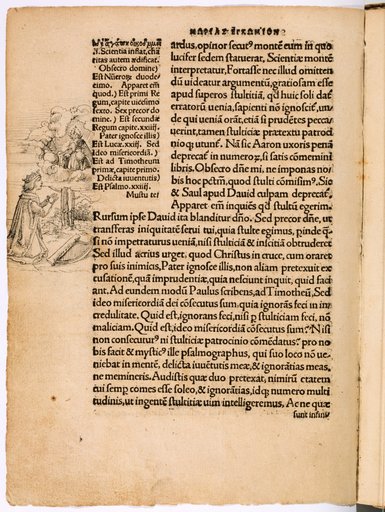 ΜΩΡΙΑΣ ΕΓΚΩΜΙΟΝ
Scientia inflat, cha
ritas autem ædificat.
Obsecro domine)
Est Nūeroᵣ duode
cimo. Apparet em̄
quod.) Est primi Re
gum, capite vicesimo
sexto. Sex precor do
mine.) Est secundæ
Regum capite.xxiiij.
Pater ignosce illis)
Est Lucæ.xxiij. Sed
ideo misericordiā.)
Est ad Timotheum
primæ, capite primo.
Delicta iuuentutis)
Est Psalmo.xxiiij.
Multū te)
ardus, opinor secutꝰ montē eum in quo
lucifer sedem statuerat, Scientiæ montē
interpretatur, Fortasse nec illud omitten
dū uideatur argumentū, gratiosam esse
apud superos stultitiā, qd' huic soli dat'
erratorū uenia, sapienti nō ignoscit', un
de qui ueniā orāt, etiā si prudētes pecca
uerint, tamen stulticiæ prætextu patroci
nioq; utunt'. Nā sic Aaron uxoris pœnā
deprecat' in numeroᵣ, si satis cōmemini
libris. Obsecro dñe mi, ne imponas no
bis hoc pctm̄, quod stulti cōmisimꝰ, Sic
& Saul apud David culpam deprecat'.
Apparet em̄ inquiēs qd' stultū egerim.
Rursum ipse David ita blanditur dño. Sed precor dñe, ut
transferas iniquitatē serui tui, quia stulte egimus, pinde q̄
si nō impetraturus ueniā, nisi stulticiā & inscitiā obtruderet
Sed illud acrius urget, quod Christus in cruce, cum oraret
pro suis inimicis, Pater ignosce illis, non aliam prætexuit ex
cusationē, quā imprudentiæ, quia nesciunt inquit, quid faci
ant. Ad eundem modū Paulus scribens, ad Timotheū, Sed
ideo misericordiā dei cōsecutus sum, quia ignorās feci in in
credulitate. Quid est, ignorans feci, nisi p stulticiam feci, nō
maliciam. Quid est, ideo misericordiā cōsecutus sum? Nisi
non consecuturꝰ ni stulticiæ patrocinio cōmēdatus? pro no
bis facit & mysticꝰ ille psalmographus, qui suo loco nō ue
niebat in mentē, delicta iuuētutis meæ, & ignorātias meas,
ne memineris. Audistis quæ duo pretexat, nimirū ætatem
cui semp comes esse soleo, & ignorātias, idq; numero multi
tudinis, ut ingentē stultitiæ uim intelligeremus. Ac ne quæ
sunt infini/